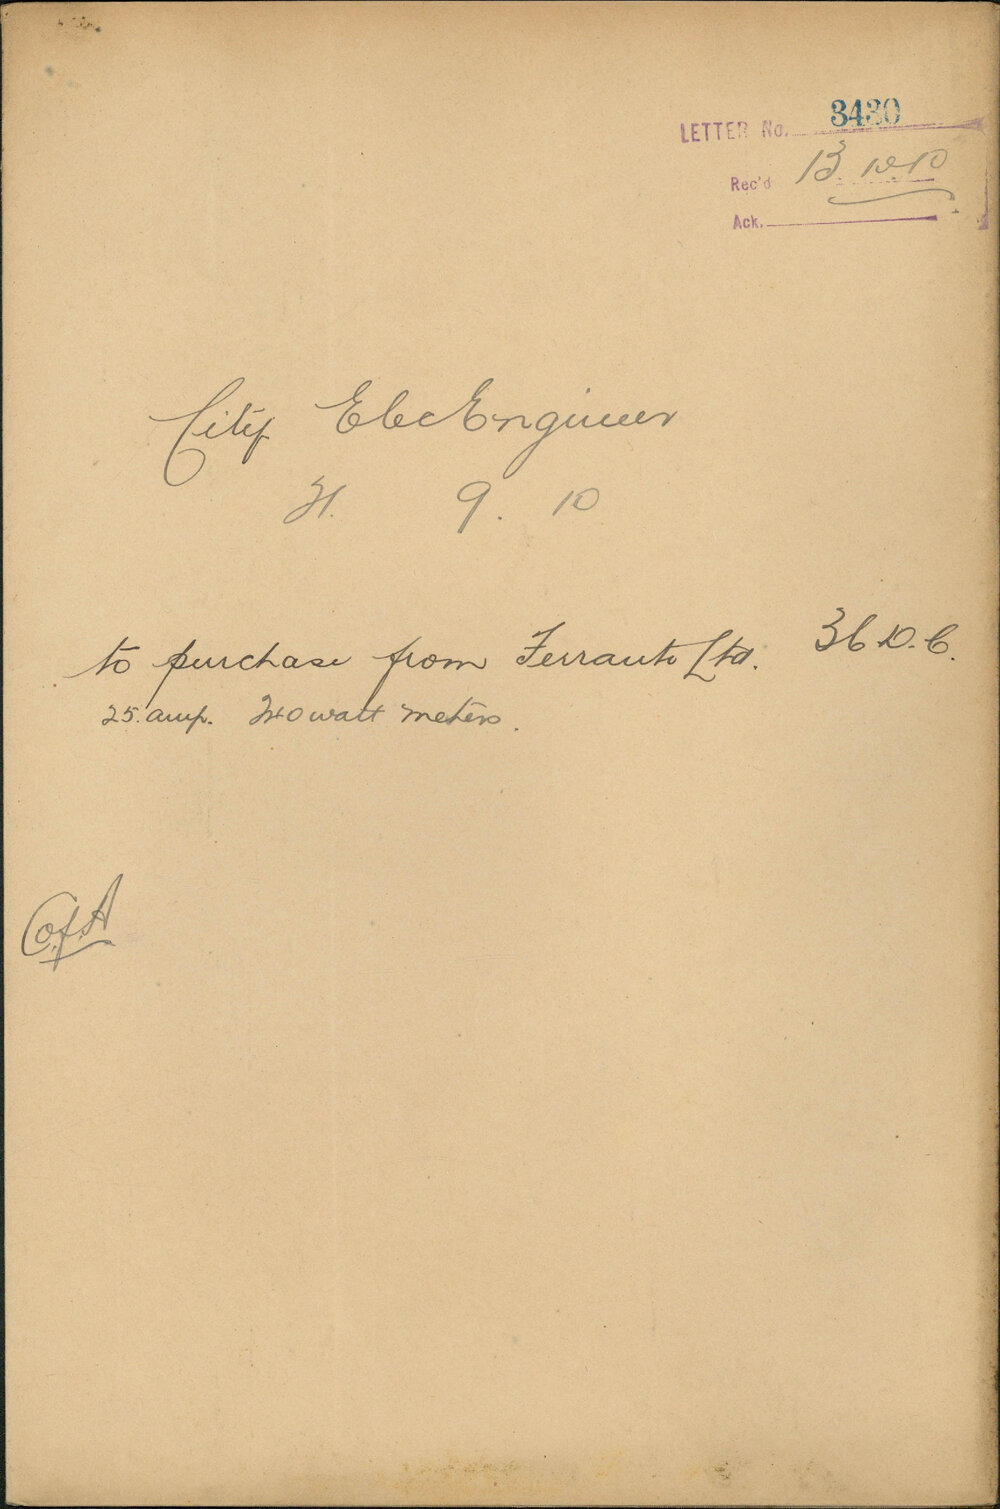 LETTER No. 3430
Rec'd 13.10.10
Ack.
City Elec Engineer
9. 10
to purchase from Ferranti Ltd. 36 D.C.
25. amp. watt meters.
C of A